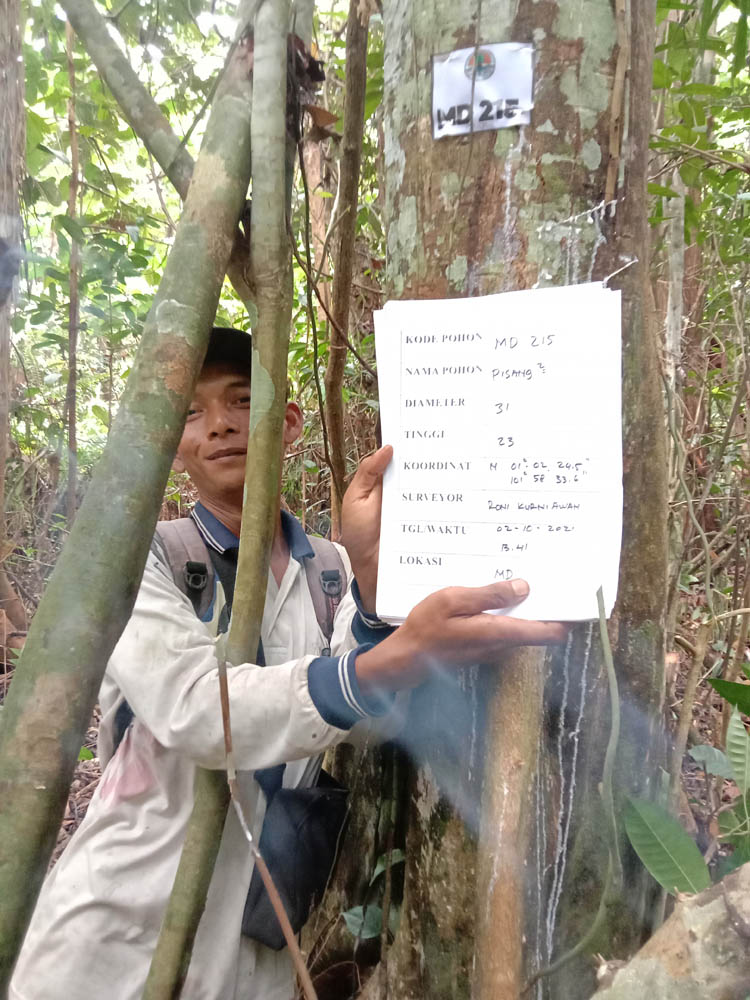 MD 215
KODE POHON MD 215
NAMA POHON PISANG²
DIAMETER 31
TINGGI 23
KOORDINAT N 01° 02. 24.5"
101° 58 33.6"
SURVEYOR RONI KURNIAWAN
TGL/WAKTU 02-10-2021
13.41
LOKASI MD